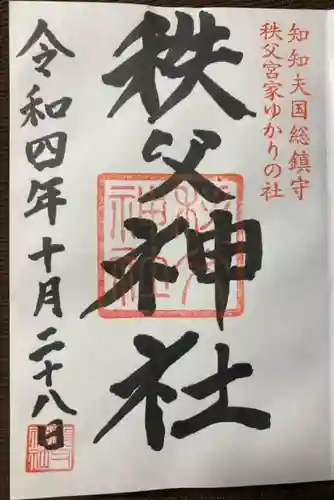 知知夫国総鎮守
秩父宮家ゆかりの社
秩父神社
令和四年十月二十八日